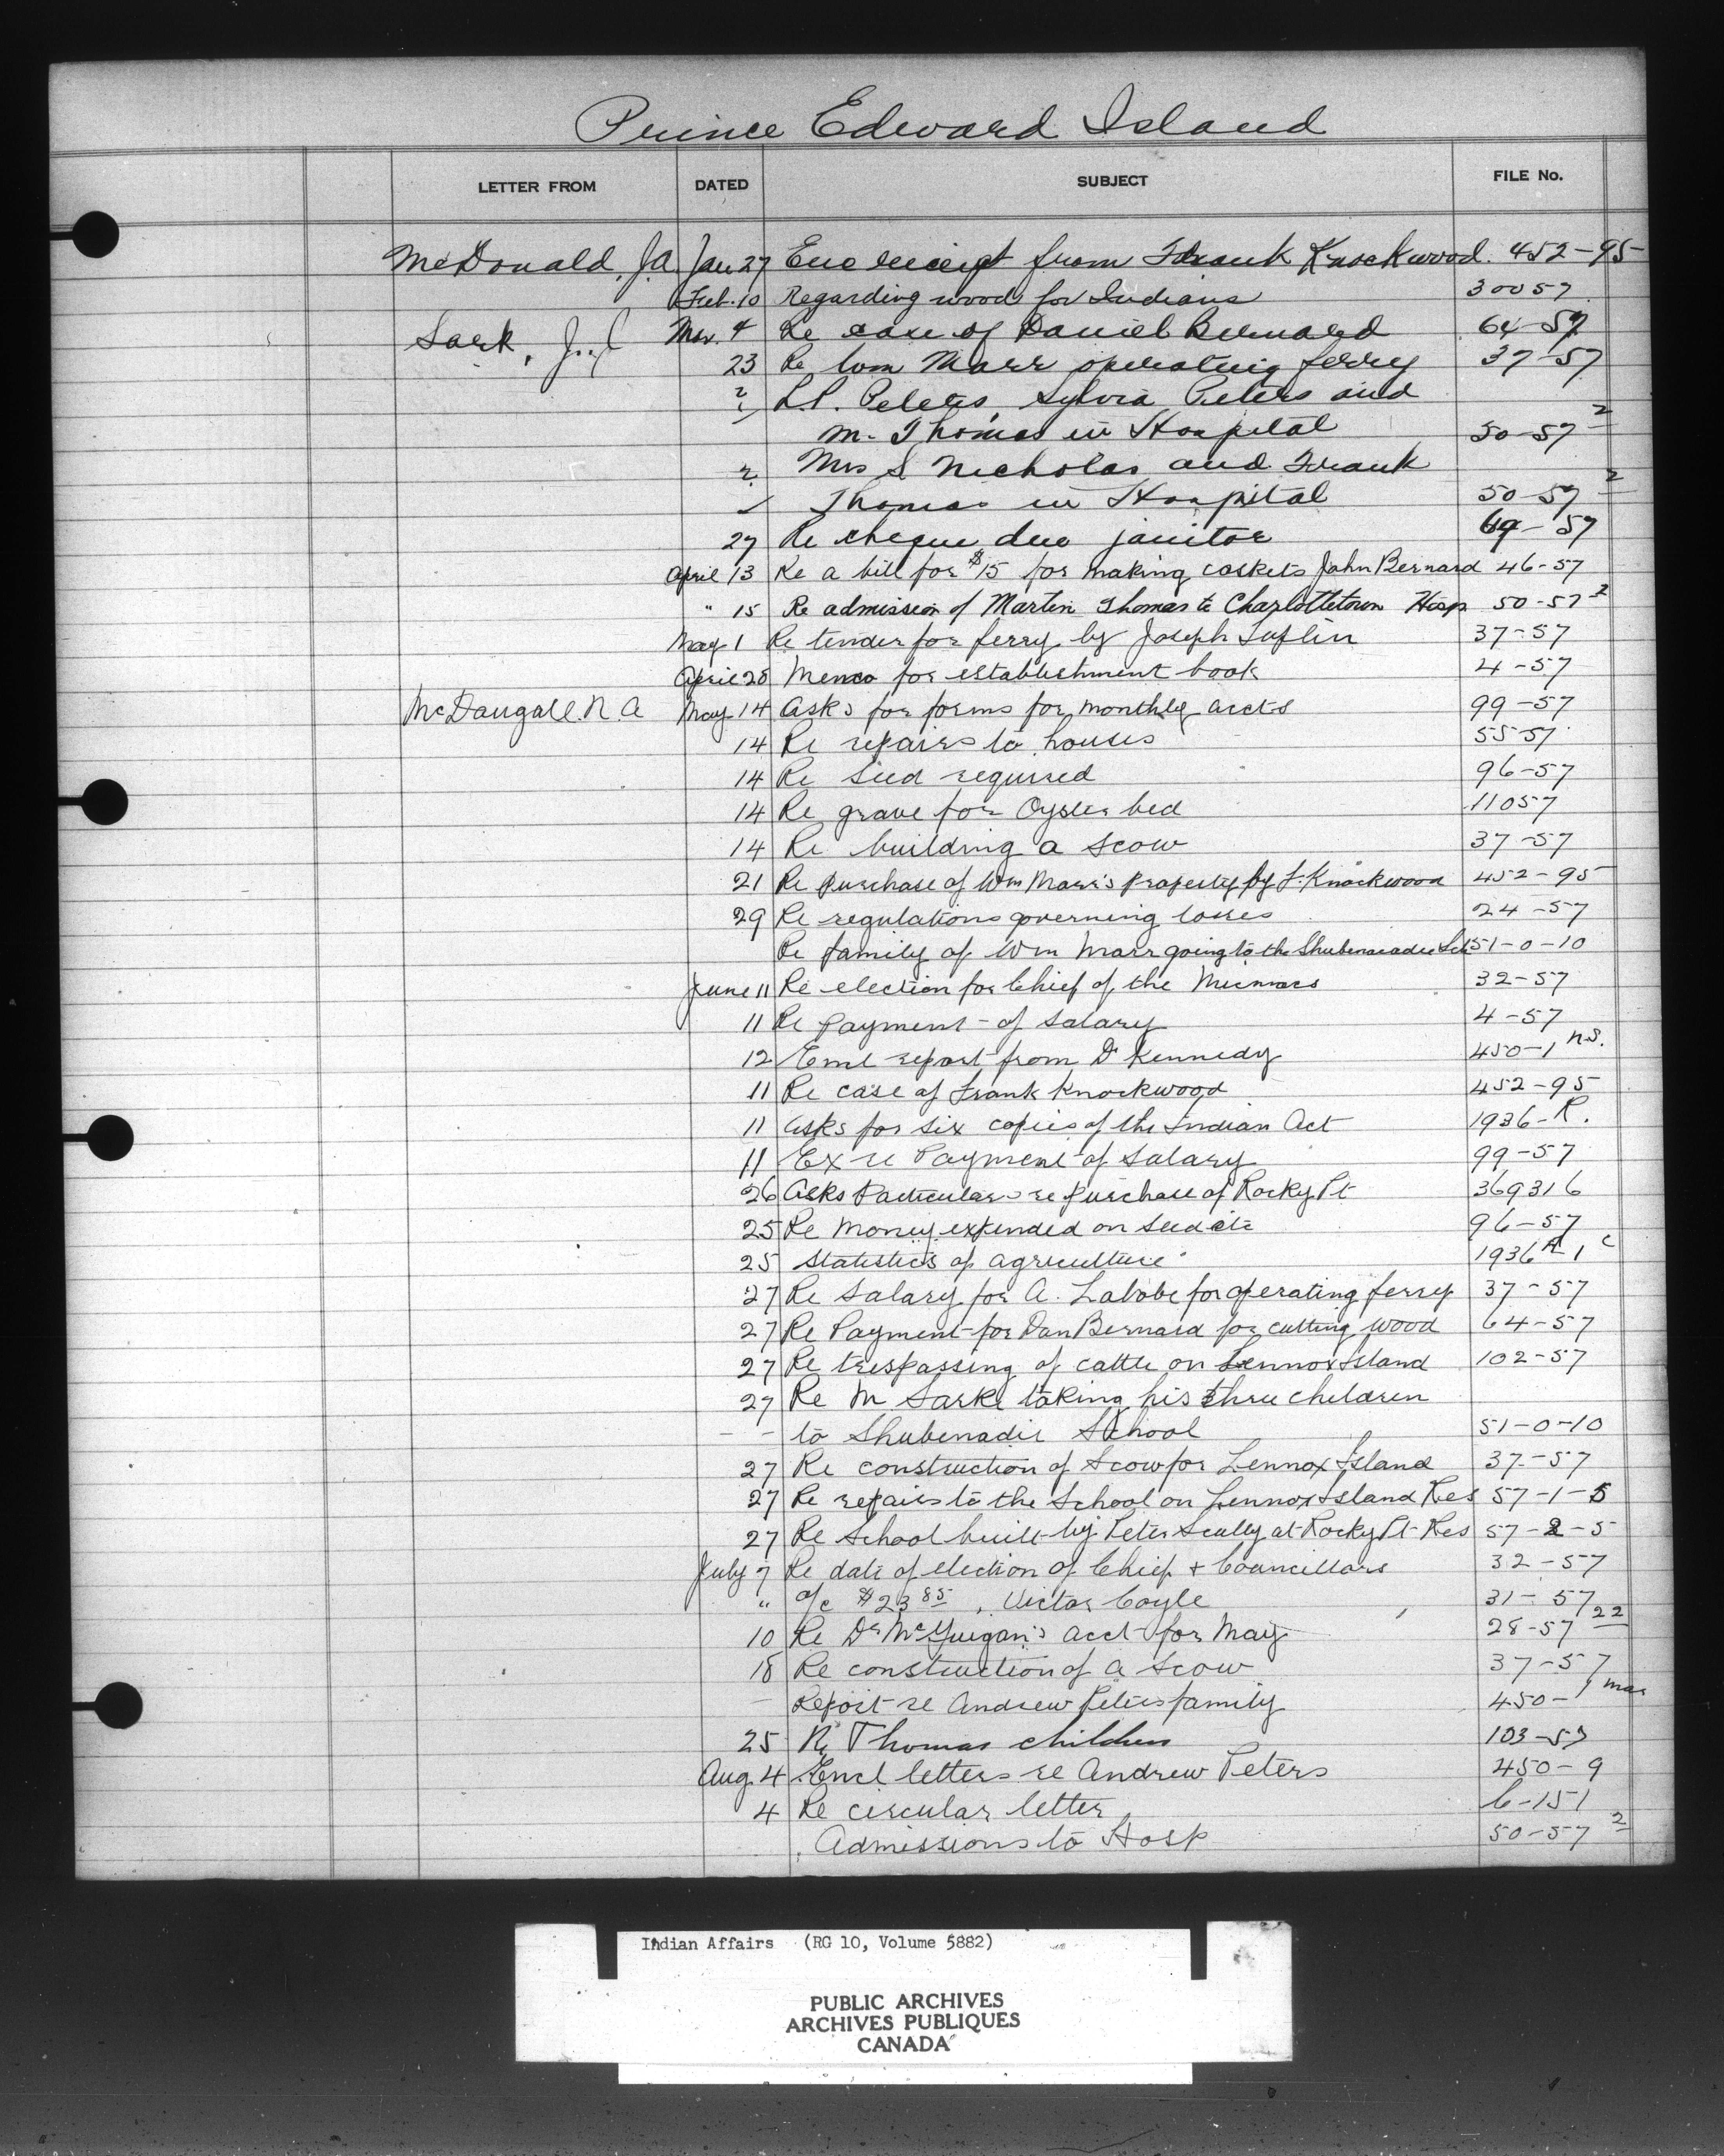 Prince Edward Island
LETTER FROM DATED SUBJECT FILE No.
McDonald, J.A. Jan 27 Enc receipt from Frank Knockwood. 452-95
Feb. 10 Regarding wood for Indians 30057
Sark, J. Mar. 4 Re case of Daniel Bernard 64-57
23 Re Wm Marr operating ferry 37-57
L.P. Peters, Sylvia Peters and
M. Thomas in Hospital 50-57 2
Mrs S Nicholas and Frank
Thomas in Hospital 50-57 2
27 Re cheque due janitor 64-57
April 13 Re a bill for $15 for making caskets John Bernard 46-57
" 15 Re admission of Martin Thomas to Charlottetown Hosp 50-57 2
May 1 Re tender for ferry by Joseph Tuplin 37-57
April 28 Memo for establishment book 4-57
McDougall. N. A May 14 Asks for forms for monthly accts 99-57
14 Re repairs to houses 55-57
14 Re seed required 96-57
14 Re grave for Oyster bed 11057
14 Re building a scow 37-57
21 Re purchase of Wm Marr's property by F. Knockwood 452-95
29 Re regulations governing losses 24-57
Re family of Wm Marr going to the Shubenacadie Sch 51-0-10
June 11 Re election for Chief of the Micmacs 32-57
11 Re payment of salary 4-57
12 Encl report from Dr Kennedy 450-1 n.S.
11 Re case of Frank Knockwood 452-95
11 Asks for six copies of the Indian Act 1936-R.
11 Ex re Payment of salary 99-57
26 Asks Particulars re purchase of Rocky Pt 369316
25 Re money expended on seed etc 96-57
25 Statistics of agriculture 1936 A-1 c
27 Re Salary for A. Labobe for operating ferry 37-57
27 Re Payment for Dan Bernard for cutting wood 64-57
27 Re trespassing of cattle on Lennox Island 102-57
27 Re M Sark taking his three children
- - to Shubenadie School 51-0-10
27 Re construction of Scow for Lennox Island 37-57
27 Re repairs to the School on Lennox Island Res 57-1-5
27 Re School built by Peter Scully at Rocky Pt Res 57-2-5
July 7 Re date of election of Chief + Councillors 32-57
" a/c $23 85, Victor Coyle 31-57
10 Re Dr McGuigan's acct for May 28-57 22
18 Re construction of a scow 37-57
- Report re Andrew Peters family 450-1 mar
25 Re Thomas children 103-57
Aug. 4 Encl letters re Andrew Peters 450-9
4 Re circular letter 6-151
Admissions to Hosp 50-57 2
Indian Affairs (RG 10, Volume 5882)
PUBLIC ARCHIVES
ARCHIVES PUBLIQUES
CANADA